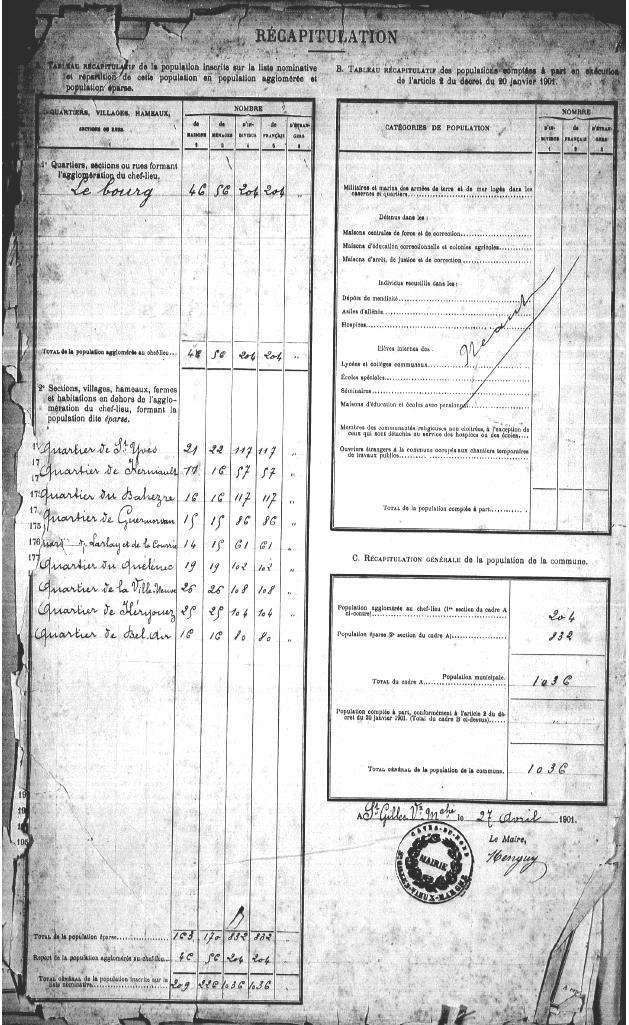 RÉCAPITULATION
A. TABLEAU RÉCAPITULATIF de la population inscrite sur la liste nominative
et répartition de cette population en population agglomérée et
population éparse.
QUARTIERS, VILLAGES, HAMEAUX,
SECTIONS OU RUES.
NOMBRE
de MAISONS
de MÉNAGES
D'INDIVIDUS
de FRANÇAIS
D'ÉTRANGERS
1° Quartiers, sections ou rues formant
l'agglomération du chef-lieu.
Le bourg 46 56 204 204
TOTAL de la population agglomérée au chef-lieu 46 56 204 204 "
2° Sections, villages, hameaux, fermes
et habitations en dehors de l'agglo-
mération du chef-lieu, formant la
population dite éparse.
Quartier de St Yves 21 22 117 117 "
Quartier de Kerniault 11 16 57 57 "
Quartier du Bahezre 16 16 117 117 "
Quartier de Guermorvan 15 15 86 86 "
14 15 61 61 "
Quartier du Quelenec 19 19 102 102 "
Quartier de la Ville-Neuve 26 26 108 108 "
Quartier de 25 25 104 104 "
Quartier de Bel-Air 16 16 80 80 "
TOTAL de la population éparse 163 170 832 832
Report de la population agglomérée au chef-lieu 46 56 204 204
TOTAL GÉNÉRAL de la population inscrite sur la
liste nominative 209 226 1036 1036
B. TABLEAU RÉCAPITULATIF des populations comptées à part en exécution
de l'article 2 du décret du 20 janvier 1901.
CATÉGORIES DE POPULATION
NOMBRE
D'INDIVIDUS
de FRANÇAIS
D'ÉTRANGERS
Militaires et marins des armées de terre et de mer logés dans les
casernes et quartiers
Détenus dans les :
Maisons centrales de force et de correction
Maisons d'éducation correctionnelle et colonies agricoles
Maisons d'arrêt, de justice et de correction
Individus recueillis dans les :
Dépôts de mendicité
Asiles d'aliénés
Hospices
Néant
Elèves internes des :
Lycées et collèges communaux
Écoles spéciales
Séminaires
Maisons d'éducation et écoles avec pensionnat
Membres des communautés religieuses non cloîtrées, à l'exception de
ceux qui sont détachés au service des hospices ou des écoles
Ouvriers étrangers à la commune occupés aux chantiers temporaires
de travaux publics
TOTAL de la population comptée à part
C. RÉCAPITULATION GÉNÉRALE de la population de la commune.
Population agglomérée au chef-lieu (1re section du cadre A
ci-contre) 204
Population éparse (2e section du cadre A) 832
Population municipale.
TOTAL du cadre A 1036
Population comptée à part, conformément à l'article 2 du dé-
cret du 20 janvier 1901. (Total du cadre B ci-dessus)
TOTAL GÉNÉRAL de la population de la commune 1036
A St Gilles Vx Mché le 27 avril 1901.
Le Maire,
CÔTES-DU-NORD
MAIRIE
VIEUX-MARCHÉ